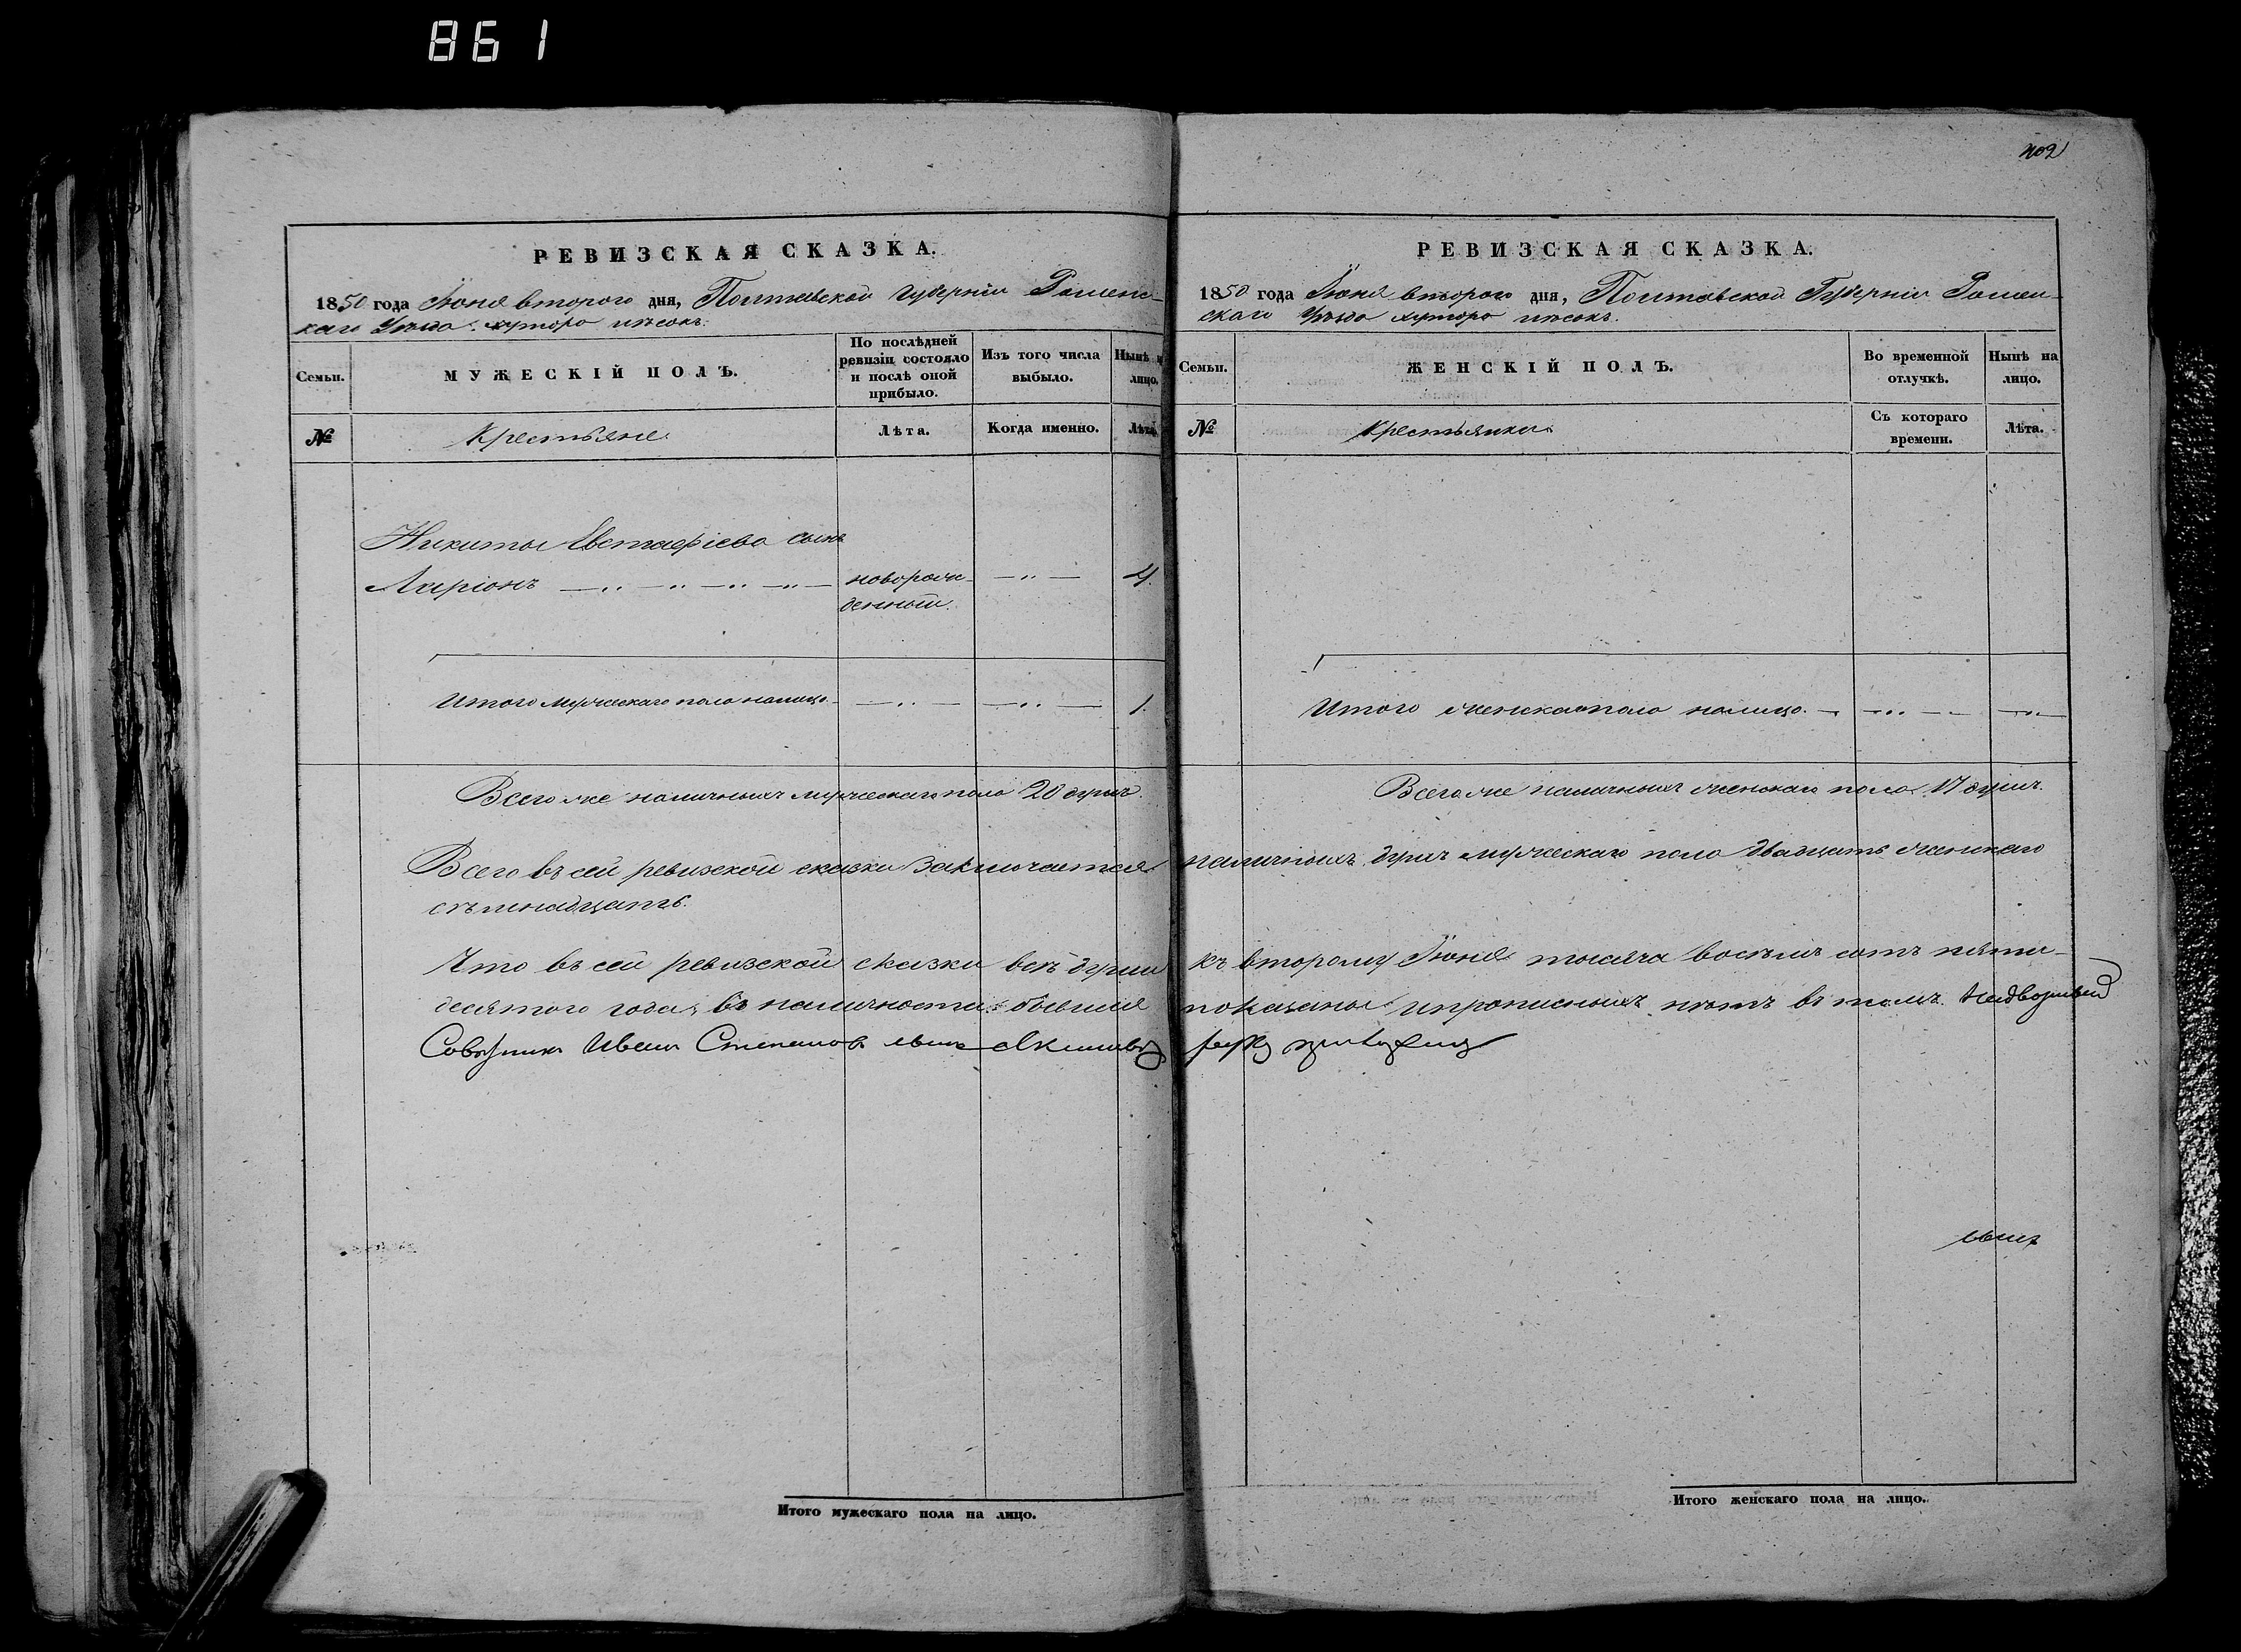 861
402
РЕВИЗСКАЯ СКАЗКА.
1850 года Іюня второго дня, Полтавской Губерніи Роменс-
каго Уѣзда хутора пѣсокъ.
Семьи.
МУЖЕСКІЙ ПОЛЪ.
По послѣдней ревизіи состояло и послѣ оной прибыло.
Изъ того числа выбыло.
Нынѣ н лицо.
№
Крестьяне
Лѣта.
Когда именно.
Лѣта
Никиты Евстафіева сынъ
Ларіонъ — „ — „ — „ — „ — новорож- — „ — 4.
денный.
Итого мужескаго пола налицо. — „ — — „ — 1.
Всего же наличныхъ мужескаго пола 20 душъ.
РЕВИЗСКАЯ СКАЗКА.
1850 года Іюня второго дня, Полтавской Губерніи Ромен-
скаго Уѣзда хутора пѣсокъ.
Семьи.
ЖЕНСКІЙ ПОЛЪ.
Во временной отлучкѣ.
Нынѣ на лицо.
№
Крестьянки
Съ котораго времени.
Лѣта.
Итого женскаго пола налицо. — — „ — — „ —
Всего же наличныхъ женскаго пола 17 душъ.
Всего въ сей ревизской сказки заключается наличныхъ душъ мужескаго пола двадцать женскаго
семнадцать.
Что въ сей ревизской сказки всѣ души къ второму Іюня тысяча восемь сотъ пяти-
десятого года, въ наличности бывшия показаны и прописныхъ нѣтъ въ томъ
Совѣтникъ Иванъ Степановъ сынъ руку приложилъ
сынъ
Итого мужескаго пола на лицо.
Итого женскаго пола на лицо.